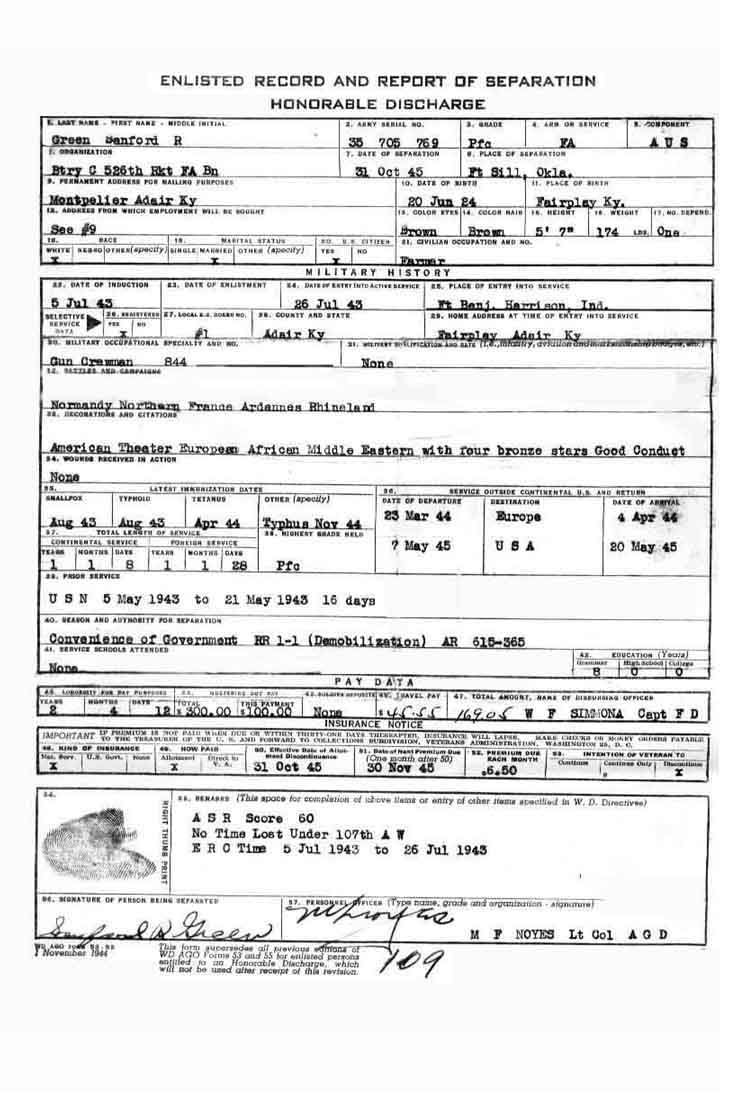 ENLISTED RECORD AND REPORT OF SEPARATION
HONORABLE DISCHARGE
1. LAST NAME - FIRST NAME - MIDDLE INITIAL 2. ARMY SERIAL NO. 3. GRADE 4. ARM OR SERVICE 5. COMPONENT
Green Sanford R 35 705 769 Pfc FA A U S
6. ORGANIZATION 7. DATE OF SEPARATION 8. PLACE OF SEPARATION
Btry C 526th Rkt FA Bn 31 Oct 45 Ft Sill, Okla.
9. PERMANENT ADDRESS FOR MAILING PURPOSES 10. DATE OF BIRTH 11. PLACE OF BIRTH
Montpelier Adair Ky 20 Jun 24 Fairplay Ky.
12. ADDRESS FROM WHICH EMPLOYMENT WILL BE SOUGHT 13. COLOR EYES 14. COLOR HAIR 15. HEIGHT 16. WEIGHT 17. NO. DEPEND.
See #9 Brown Brown 5' 7" 174 LBS. One
18. RACE 19. MARITAL STATUS 20. U.S. CITIZEN 21. CIVILIAN OCCUPATION AND NO.
WHITE NEGRO OTHER (specify) SINGLE MARRIED OTHER (specify) YES NO
X X X Farmer
MILITARY HISTORY
22. DATE OF INDUCTION 23. DATE OF ENLISTMENT 24. DATE OF ENTRY INTO ACTIVE SERVICE 25. PLACE OF ENTRY INTO SERVICE
5 Jul 43 26 Jul 43 Ft Benj. Harrison, Ind.
SELECTIVE SERVICE DATA 26. REGISTERED YES NO 27. LOCAL S.S. BOARD NO. 28. COUNTY AND STATE 29. HOME ADDRESS AT TIME OF ENTRY INTO SERVICE
X #1 Adair Ky Fairplay Adair Ky
30. MILITARY OCCUPATIONAL SPECIALTY AND NO. 31. MILITARY QUALIFICATION AND DATE
Gun Crewman 844 None
32. BATTLES AND CAMPAIGNS
Normandy Northern France Ardennes Rhineland
33. DECORATIONS AND CITATIONS
American Theater European African Middle Eastern with four bronze stars Good Conduct
34. WOUNDS RECEIVED IN ACTION
None
35. LATEST IMMUNIZATION DATES 36. SERVICE OUTSIDE CONTINENTAL U.S. AND RETURN
SMALLPOX TYPHOID TETANUS OTHER (specify) DATE OF DEPARTURE DESTINATION DATE OF ARRIVAL
Aug 43 Aug 43 Apr 44 Typhus Nov 44 23 Mar 44 Europe 4 Apr 44
37. TOTAL LENGTH OF SERVICE 38. HIGHEST GRADE HELD
CONTINENTAL SERVICE FOREIGN SERVICE
YEARS MONTHS DAYS YEARS MONTHS DAYS 7 May 45 U S A 20 May 45
1 1 8 1 1 28 Pfc
39. PRIOR SERVICE
U S N 5 May 1943 to 21 May 1943 16 days
40. REASON AND AUTHORITY FOR SEPARATION
Convenience of Government RR 1-1 (Demobilization) AR 615-365
41. SERVICE SCHOOLS ATTENDED 42. EDUCATION (Years)
Grammar High School College
None 8 0 0
PAY DATA
43. LONGEVITY FOR PAY PURPOSES 44. MUSTERING OUT PAY 45. SOLDIER DEPOSITS 46. TRAVEL PAY 47. TOTAL AMOUNT, NAME OF DISBURSING OFFICER
YEARS MONTHS DAYS TOTAL THIS PAYMENT
2 4 12 $ 300.00 $100.00 None $45.55 169.05 W F SIMMONA Capt F D
INSURANCE NOTICE
IMPORTANT IF PREMIUM IS NOT PAID WHEN DUE OR WITHIN THIRTY-ONE DAYS THEREAFTER, INSURANCE WILL LAPSE. MAKE CHECKS OR MONEY ORDERS PAYABLE
TO THE TREASURER OF THE U. S. AND FORWARD TO COLLECTIONS SUBDIVISION, VETERANS ADMINISTRATION, WASHINGTON 25, D. C.
48. KIND OF INSURANCE 49. HOW PAID 50. Effective Date of Allotment Discontinuance 51. Date of Next Premium Due (One month after 50) 52. PREMIUM DUE EACH MONTH 53. INTENTION OF VETERAN TO
Nat. Serv. U.S. Govt. None Allotment Direct to V. A. Continue Continue Only Discontinue
X X 31 Oct 45 30 Nov 45 $6.50 X
54. 55. REMARKS (This space for completion of above items or entry of other items specified in W. D. Directives)
RIGHT THUMB PRINT
A S R Score 60
No Time Lost Under 107th A W
E R C Time 5 Jul 1943 to 26 Jul 1943
56. SIGNATURE OF PERSON BEING SEPARATED 57. PERSONNEL OFFICER (Type name, grade and organization - signature)
Sanford R Green
M F NOYES Lt Col A G D
WD AGO FORM 53-55
1 November 1944
This form supersedes all previous editions of
WD AGO Forms 53 and 55 for enlisted persons
entitled to an Honorable Discharge, which
will not be used after receipt of this revision.
109